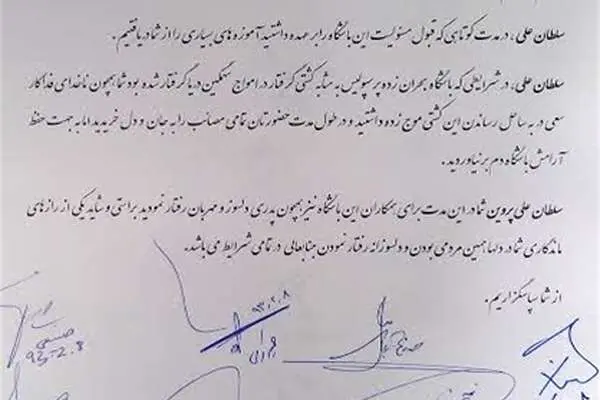 سلطان علی، در مدت کوتاهی که قبول مسئولیت این باشگاه را بر عهده داشتید آموزه های بسیاری را از شما دریافتیم.
سلطان علی، در شرایطی که باشگاه بحران زده پرسپولیس به مثابه کشتی گرفتار در امواج سهمگین دریا گرفتار شده بود شما همچون ناخدای فداکار
سعی در به ساحل رساندن این کشتی موج زده داشتید و در طول مدت حضورتان تمامی مصائب را به جان و دل خریدید اما به جهت حفظ
آرامش باشگاه دم بر نیاوردید.
سلطان علی پروین شما در این مدت برای همکاران این باشگاه نیز همچون پدری دلسوز و مهربان رفتار نمودید براستی و شاید یکی از رازهای
ماندگاری شما در دلها همین مردمی بودن و دلسوزانه رفتار نمودن جنابعالی در تمامی شرایط می باشد.
از شما سپاسگزاریم.
۹۳,۲,۸
93-2-8